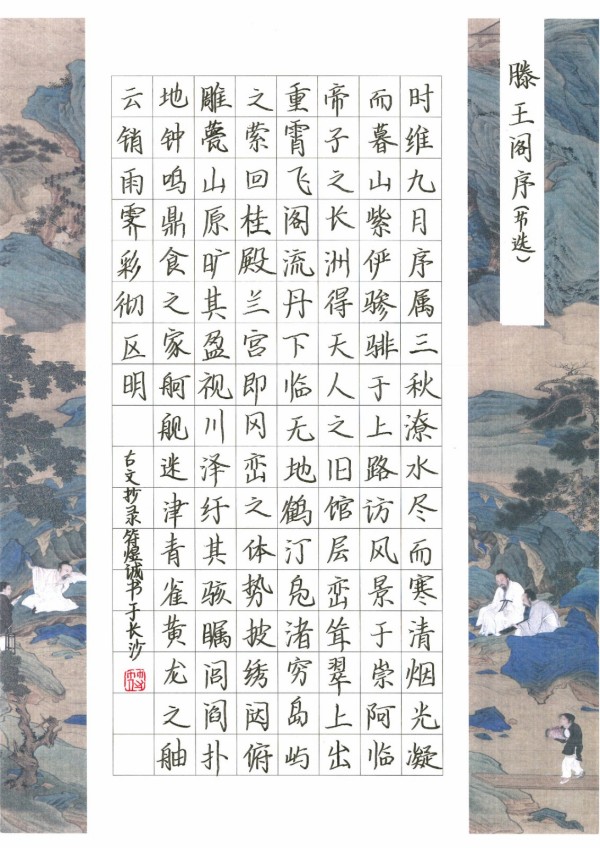 滕王阁序(节选)
时维九月序属三秋潦水尽而寒清烟光凝
而暮山紫俨骖𬴂于上路访风景于崇阿临
帝子之长洲得天人之旧馆层峦耸翠上出
重霄飞阁流丹下临无地鹤汀凫渚穷岛屿
之萦回桂殿兰宫即冈峦之体势披绣闼俯
雕甍山原旷其盈视川泽纡其骇瞩闾阎扑
地钟鸣鼎食之家舸舰迷津青雀黄龙之舳
云销雨霁彩彻区明
古文抄录符煜诚书于长沙